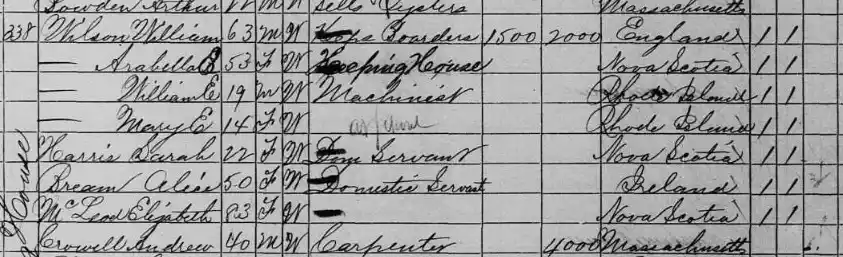 Bowden Arthur M W Sells Oysters Massachusetts
238 Wilson William 63 M W Keeps Boarders 1500 2000 England 1 1
— Arabella E 53 F W Keeping House Nova Scotia 1 1
— William E 19 M W Machinist Rhode Island 1 1
— Mary E 14 F W at school Rhode Island 1 1
Harris Sarah 22 F W Dom Servant Nova Scotia 1 1
Bream Alice 50 F W Domestic Servant Ireland 1 1
McLeod Elizabeth 23 F W — Nova Scotia 1 1
Crowell Andrew 40 M W Carpenter 4000 Massachusetts
House